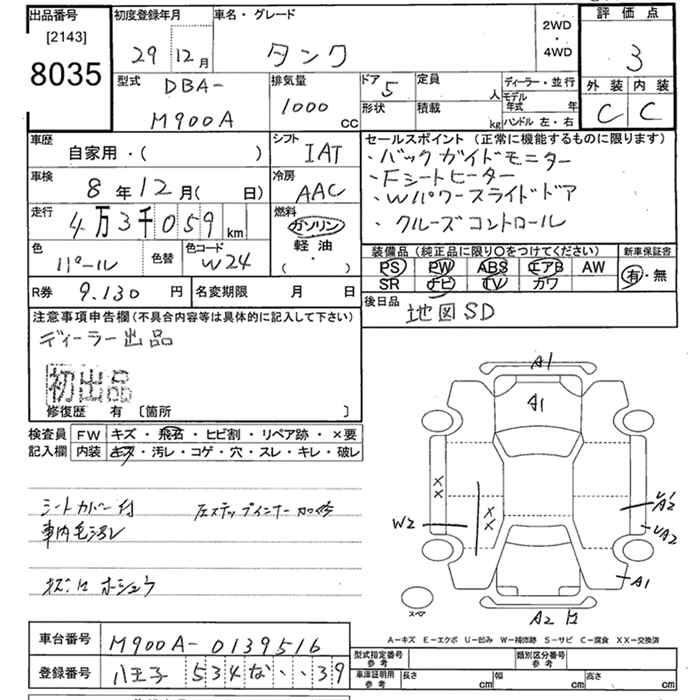 出品番号
[2143]
8035
初度登録年月
29 12月
車名・グレード
タンク
2WD
・
4WD
評価点
3
外装 内装
C C
型式
DBA-
M900A
排気量
1000
cc
ドア
5
形状
定員
人
積載
kg
ディーラー・並行
モデル年式 年
ハンドル 左・右
車歴
自家用・( )
シフト
IAT
車検
8年12月( 日)
冷房
AAC
走行
4万3千059km
燃料
ガソリン
軽油
( ・ )
色
パール
色替
色コード
W24
R券
9.130円
名変期限 月 日
セールスポイント (正常に機能するものに限ります)
・バックガイドモニター
・Fシートヒーター
・Wパワースライドドア
・クルーズコントロール
装備品(純正品に限り○をつけてください)
PS PW ABS エアB AW
SR ナビ TV カワ
新車保証書
有・無
後日品
地図SD
注意事項申告欄(不具合内容等は具体的に記入して下さい)
ディーラー出品
初出品
修復歴 有〔箇所 〕
検査員記入欄
FW キズ・飛石・ヒビ割・リペア跡・×要
内装 キズ・汚レ・コゲ・穴・スレ・キレ・破レ
シートカバー付
車内毛汚レ
左ステップインナー加修
ホシュウ
A1
A1
W2
XX
XX
A2
A1
A2
スペア
A-キズ E-エクボ U-凹み W-補修跡 S-サビ C-腐食 XX-交換済
車台番号
M900A-0139516
登録番号
八王子 534 な ・・39
型式指定番号
参考
類別区分番号
参考
車庫証明用
参考
長さ cm
幅 cm
高さ cm